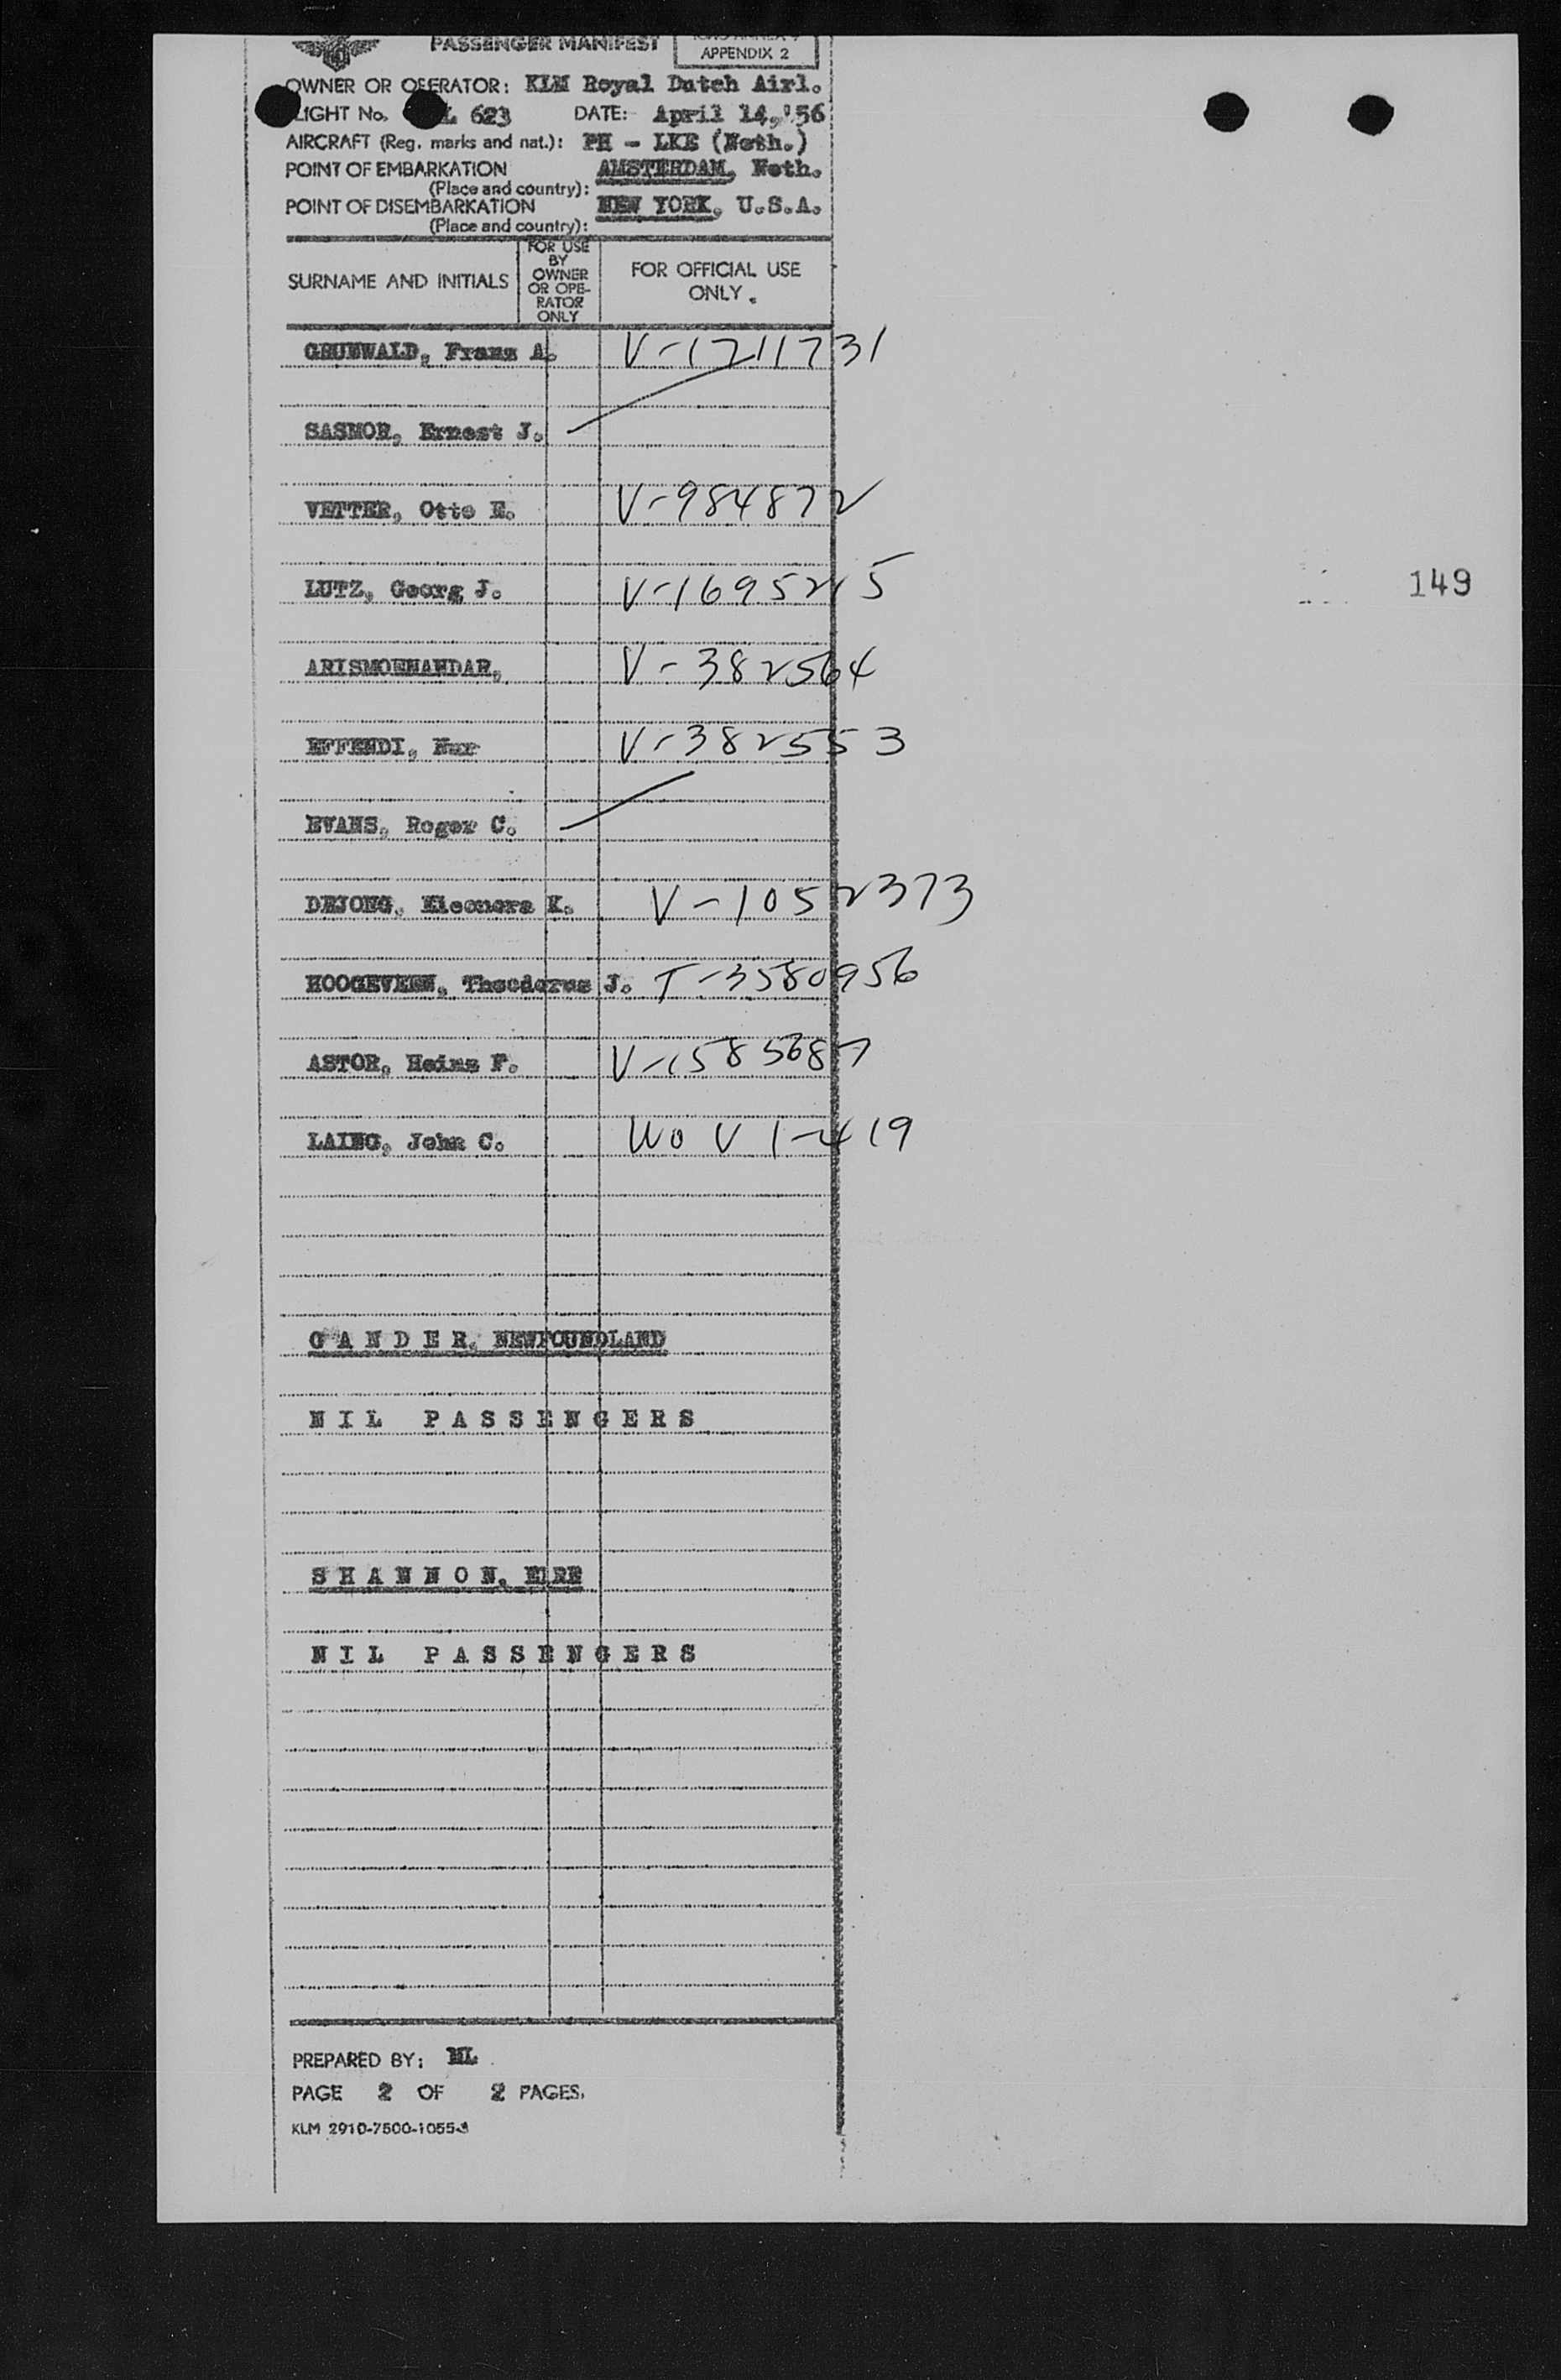 PASSENGER MANIFEST
APPENDIX 2
OWNER OR OPERATOR: KLM Royal Dutch Airl.
LIGHT No. L 623 DATE: April 14, '56
AIRCRAFT (Reg. marks and nat.): PH - LKE (Neth.)
POINT OF EMBARKATION
(Place and country): AMSTERDAM, Neth.
POINT OF DISEMBARKATION
(Place and country): NEW YORK, U.S.A.
SURNAME AND INITIALS
FOR USE
BY
OWNER
OR OPE-
RATOR
ONLY
FOR OFFICIAL USE
ONLY.
GRUNWALD, Franz A. V-1711731
SASMOR, Ernest J.
VETTER, Otto E. V-984872
149
LUTZ, Georg J. V-1695215
ARISMOENANDAR, V-382564
EFFENDI, Nur V-382553
EVANS, Roger C.
DEJONG, Eleonora K. V-1052373
HOOGEVEEN, Theodorus J. T-3580956
ASTOR, Heinz F. V-1585687
LAING, John C. WO V 1-419
G A N D E R, NEWFOUNDLAND
N I L P A S S E N G E R S
S H A N N O N, EIRE
N I L P A S S E N G E R S
PREPARED BY: ML
PAGE 2 OF 2 PAGES.
KLM 2910-7500-1055-3